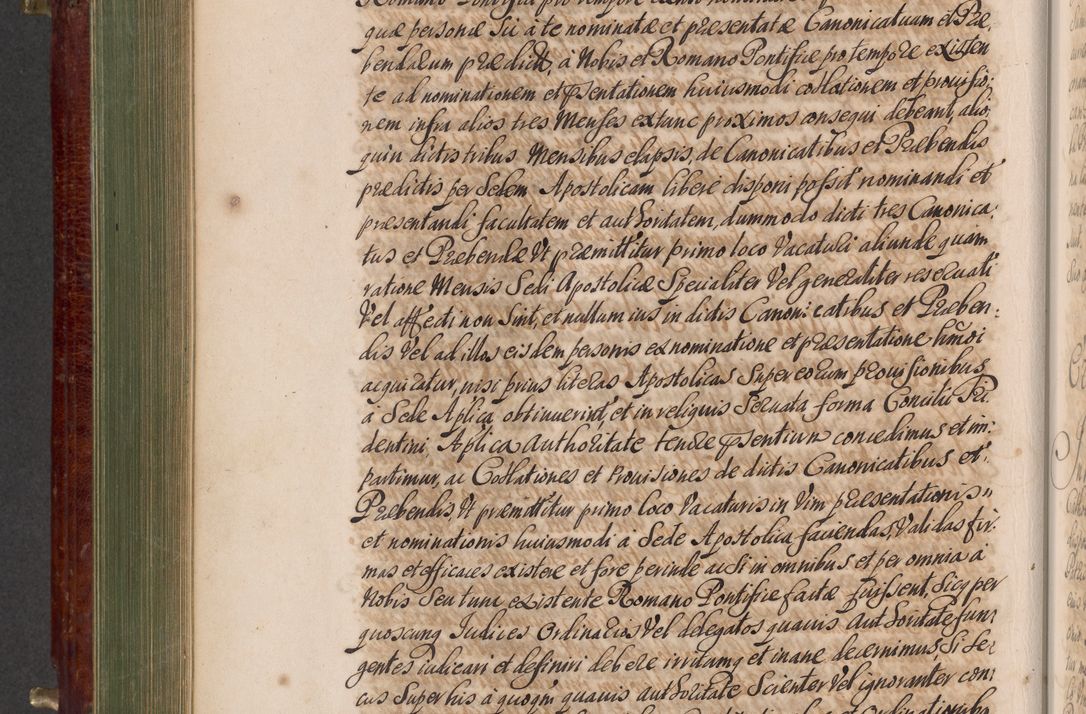 quæ personæ Sic á te nominatæ et præsentatæ Canonicatuum et Præ
bendarum prædict, á Nobis et Romano Pontifice pro tempore existen
te ad nominationem et pñsentationem huiusmodi collationem et prouisio
nem infra alios tres Menses extunc proximos consequi debeant, alio
quin dictis tribus Mensibus elapsis, de Canonicatibus et Præbendis
prædictis per Sedem Apostolicam liberé disponi possit nominandi et
præsentandi facultatem et authoritatem, dummodo dicti tres Canonica:
tus et Præbendæ Vt præmittitur primo loco Vacaturi aliunde quam
ratione Mensis Sedi Apostolicæ Specialiter Vel generaliter reseruati
Vel affecti non Sint, et nullum ius in dictis Canonicatibus et Præben:
dis Vel ad illos eisdem personis ex nominatione et præsentatione hmõi
acquiratur, nisi prius literas Apostolicas Super eorum prouisionibus
á Sede Aplica obtinuerint, et in reliquis Seruata forma Concilii Tri
dentini, Aplica Authoritate tenore pñsentium concedimus et im:
partimur, ac Collationes et Prouisiones de dictis Canonicatibus et
Præbendis, Vt præmittitur primo loco Vacaturis in Vim præsentationis
et nominationis huiusmodi á Sede Apostolica faciendas, Validas fir:
mas et efficaces existere et fore perinde ac Si in omnibus et per omnia á
Nobis Seu tunc existente Romano Pontifice factæ fuissent, Sicq per
quoscunq Iudices Ordinarios Vel delegatos quauis Authoritate fun:
gentes iudicari et definiri debere irritumq et inane decernimus, Si Se:
cus Super his á quoqm quauis authoritate Scienter Vel ignoranter con: